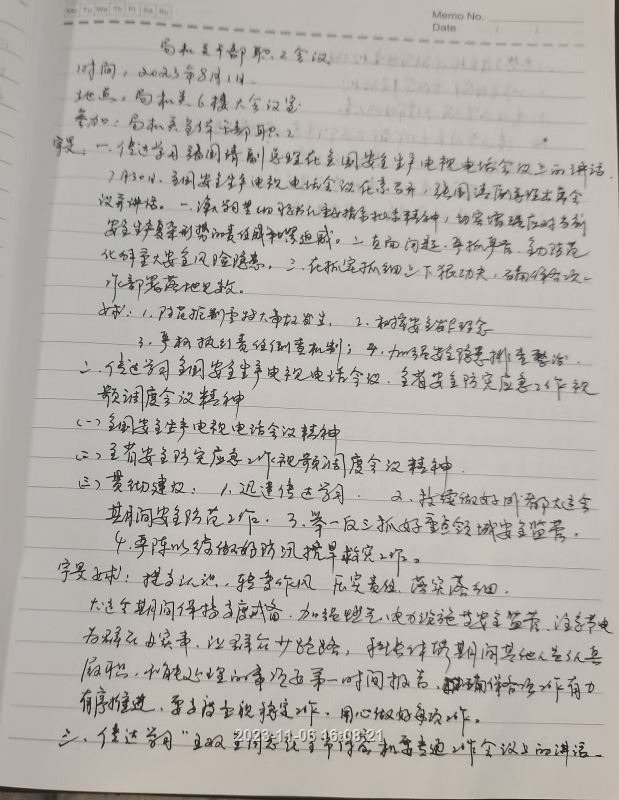 Mo Tu We Th Fr Sa Su
Memo No.
Date / /
局机关干部职工会议
时间：2023年8月1日.
地点：局机关6楼大会议室
参加：局机关全体干部职工
一、传达学习张国清副总理在全国安全生产电视电话会议上的讲话.
7月30日，全国安全生产电视电话会议在京召开，张国清副总理出席会
议并讲话。一、深入学习贯彻习总书记重要指示批示精神，切实增强应对当前
安全生产复杂形势的责任感和紧迫感。二、直面问题、严抓严管、全力防范
化解重大安全风险隐患。三、在抓实抓细上下狠功夫，确保各次
工作部署落地见效。
要求：1、防范控制重特大事故发生. 2、树牢安全发展理念
3、严格执行责任倒查机制；4、加强安全隐患排查整治.
二、传达学习全国安全生产电视电话会议、全省安全防灾应急工作视
频调度会议精神
(一)全国安全生产电视电话会议精神
(二)全省安全防灾应急工作视频调度会议精神.
(三)贯彻建议：1、迅速传达学习. 2、持续做好成都大运会
期间安全防范工作. 3、举一反三抓好重点领域安全监管.
4、严阵以待做好防汛抗旱救灾工作。
要求：提高认识、转变作风、压实责任、落实落细.
大运会期间保持高度戒备、加强燃气、电力设施等安全监管、注意节电
为群众办实事、让群众少跑路, 科长休假期间其他人员认真
履职, 不能处理的事项要第一时间报告, 确保各项工作有力
有序推进, 要高度重视稳定工作, 用心做好每项工作。
三、传达学习"全同志在全市保密机要交通工作会议上的讲话
2023-11-06 16:08:21